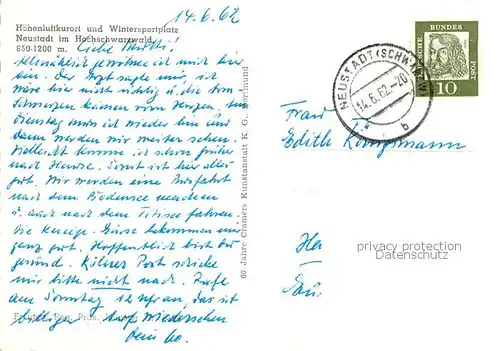 14.6.62
Höhenluftkurort und Wintersportplatz
Neustadt im Hochschwarzwald
850-1200 m.
Liebe Mutti!
Allmählich gewöhne ich mich hier
ein. Der Arzt sagte mir, ich
wäre hier nicht richtig u. die
Schmerzen kämen vom Herzen. Am
bin ich wieder hin und
dann werden wir weiter sehen.
Vielleicht komme ich schon früher
nach Hause. Sonst ist hier alles
gut. Wir werden eine Ausfahrt
nach dem Bodensee machen
u. auch nach dem Titisee fahren.
Die Grüsse bekommen mir
ganz gut. Hoffentlich bist du
gesund. Kölner Post schicke
mir bitte nicht nach. Rufe
am Sonntag 12 Uhr an, das ist
billiger Auf Wiedersehen
Dein
60 Jahre Cramers Kunstanstalt K G, Dortmund
DEUTSCHE BUNDESPOST
10
NEUSTADT (SCHWARZW)
14.6.62-20
b
Frau
Edith
privacy protection
Datenschutz